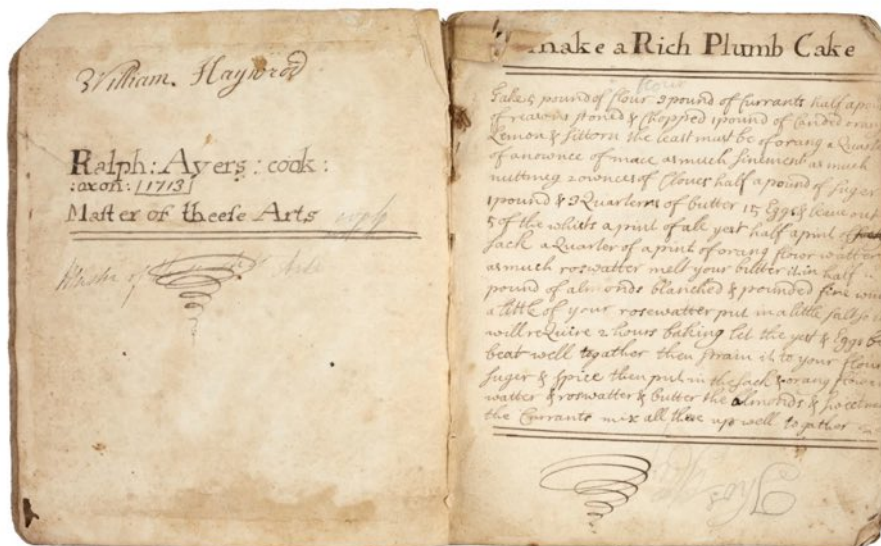 William. Haywood
Ralph: Ayers: cook:
:oxon: 1713
Master of theese Arts
Master of Arts
make a Rich Plumb Cake
flour
Take 5 pound of flour 3 pound of Currants half a poun
of reasons stoned & Chopped 1 pound of Canded orang
Lemon & Sittorn the least must be of orang a Quarte
of an ownce of mace as much Sinement as much
nuttmeg 2 ownces of Cloves half a pound of Suger
1 pound & 3 Quarterns of butter 15 Eggs leave out
5 of the whits a print of ale yest half a print of
Sack a Quarter of a print of orang flower watter
as much roswatter melt your butter it in half a
pound of almonds blanched & pounded fine with
a little of your rosewatter put in a little salt so it
will reQuire 2 hours baking let the yest & Eggs be
beat well togather then strain it to your flour
Suger & Spice then put in the Sack & orang flower
watter & roswatter & butter the almonds & Sweetmea
the Currants mix all these up well togather